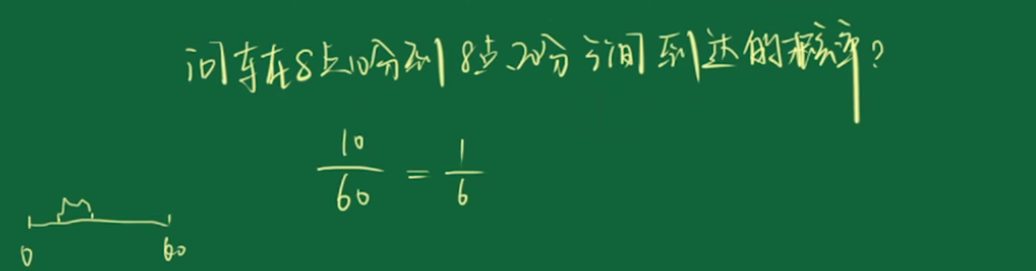 问车在8点10分到8点20分之间到达的概率?
10/60 = 1/6
0 60